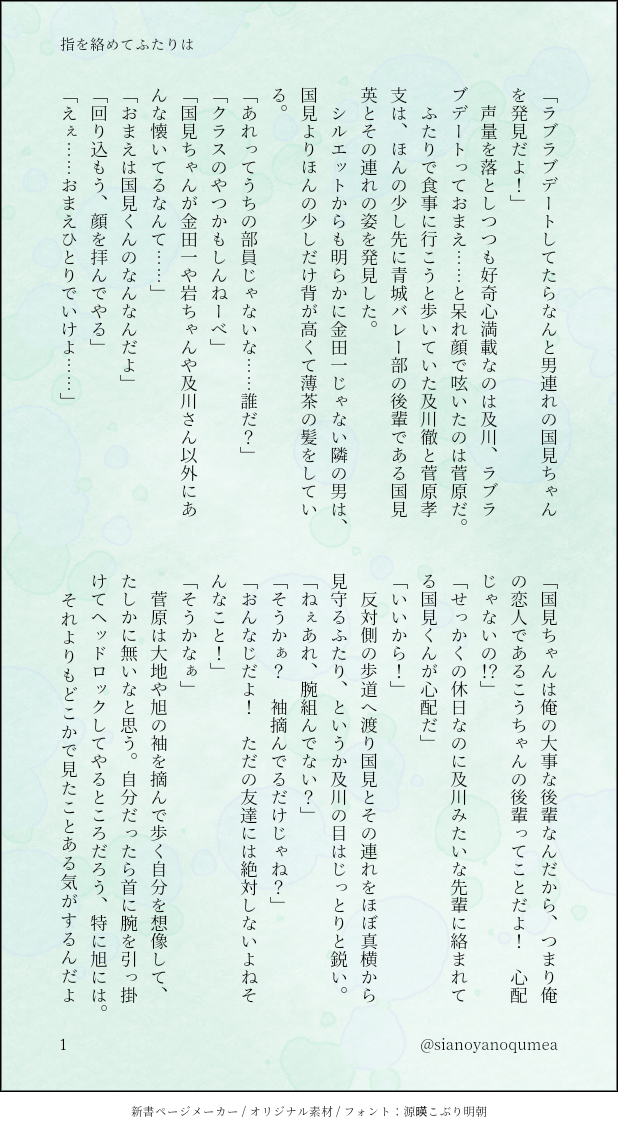 指を絡めてふたりは
「ラブラブデートしてたらなんと男連れの国見ちゃん
を発見だよ！」
　声量を落としつつも好奇心満載なのは及川、ラブラ
ブデートっておまえ……と呆れ顔で呟いたのは菅原だ。
　ふたりで食事に行こうと歩いていた及川徹と菅原孝
支は、ほんの少し先に青城バレー部の後輩である国見
英とその連れの姿を発見した。
　シルエットからも明らかに金田一じゃない隣の男は、
国見よりほんの少しだけ背が高くて薄茶の髪をしてい
る。
「あれってうちの部員じゃないな……誰だ？」
「クラスのやつかもしんねーべ」
「国見ちゃんが金田一や岩ちゃんや及川さん以外にあ
んな懐いてるなんて……」
「おまえは国見くんのなんなんだよ」
「回り込もう、顔を拝んでやる」
「えぇ……おまえひとりでいけよ……」
「国見ちゃんは俺の大事な後輩なんだから、つまり俺
の恋人であるこうちゃんの後輩ってことだよ！　心配
じゃないの!?」
「せっかくの休日なのに及川みたいな先輩に絡まれて
る国見くんが心配だ」
「いいから！」
　反対側の歩道へ渡り国見とその連れをほぼ真横から
見守るふたり、というか及川の目はじっとりと鋭い。
「ねぇあれ、腕組んでない？」
「そうかぁ？　袖摘んでるだけじゃね？」
「おんなじだよ！　ただの友達には絶対しないよねそ
んなこと！」
「そうかなぁ」
　菅原は大地や旭の袖を摘んで歩く自分を想像して、
たしかに無いなと思う。自分だったら首に腕を引っ掛
けてヘッドロックしてやるところだろう、特に旭には。
　それよりもどこかで見たことある気がするんだよ
1
@sianoyanoqumea
新書ページメーカー / オリジナル素材 / フォント：源暎こぶり明朝